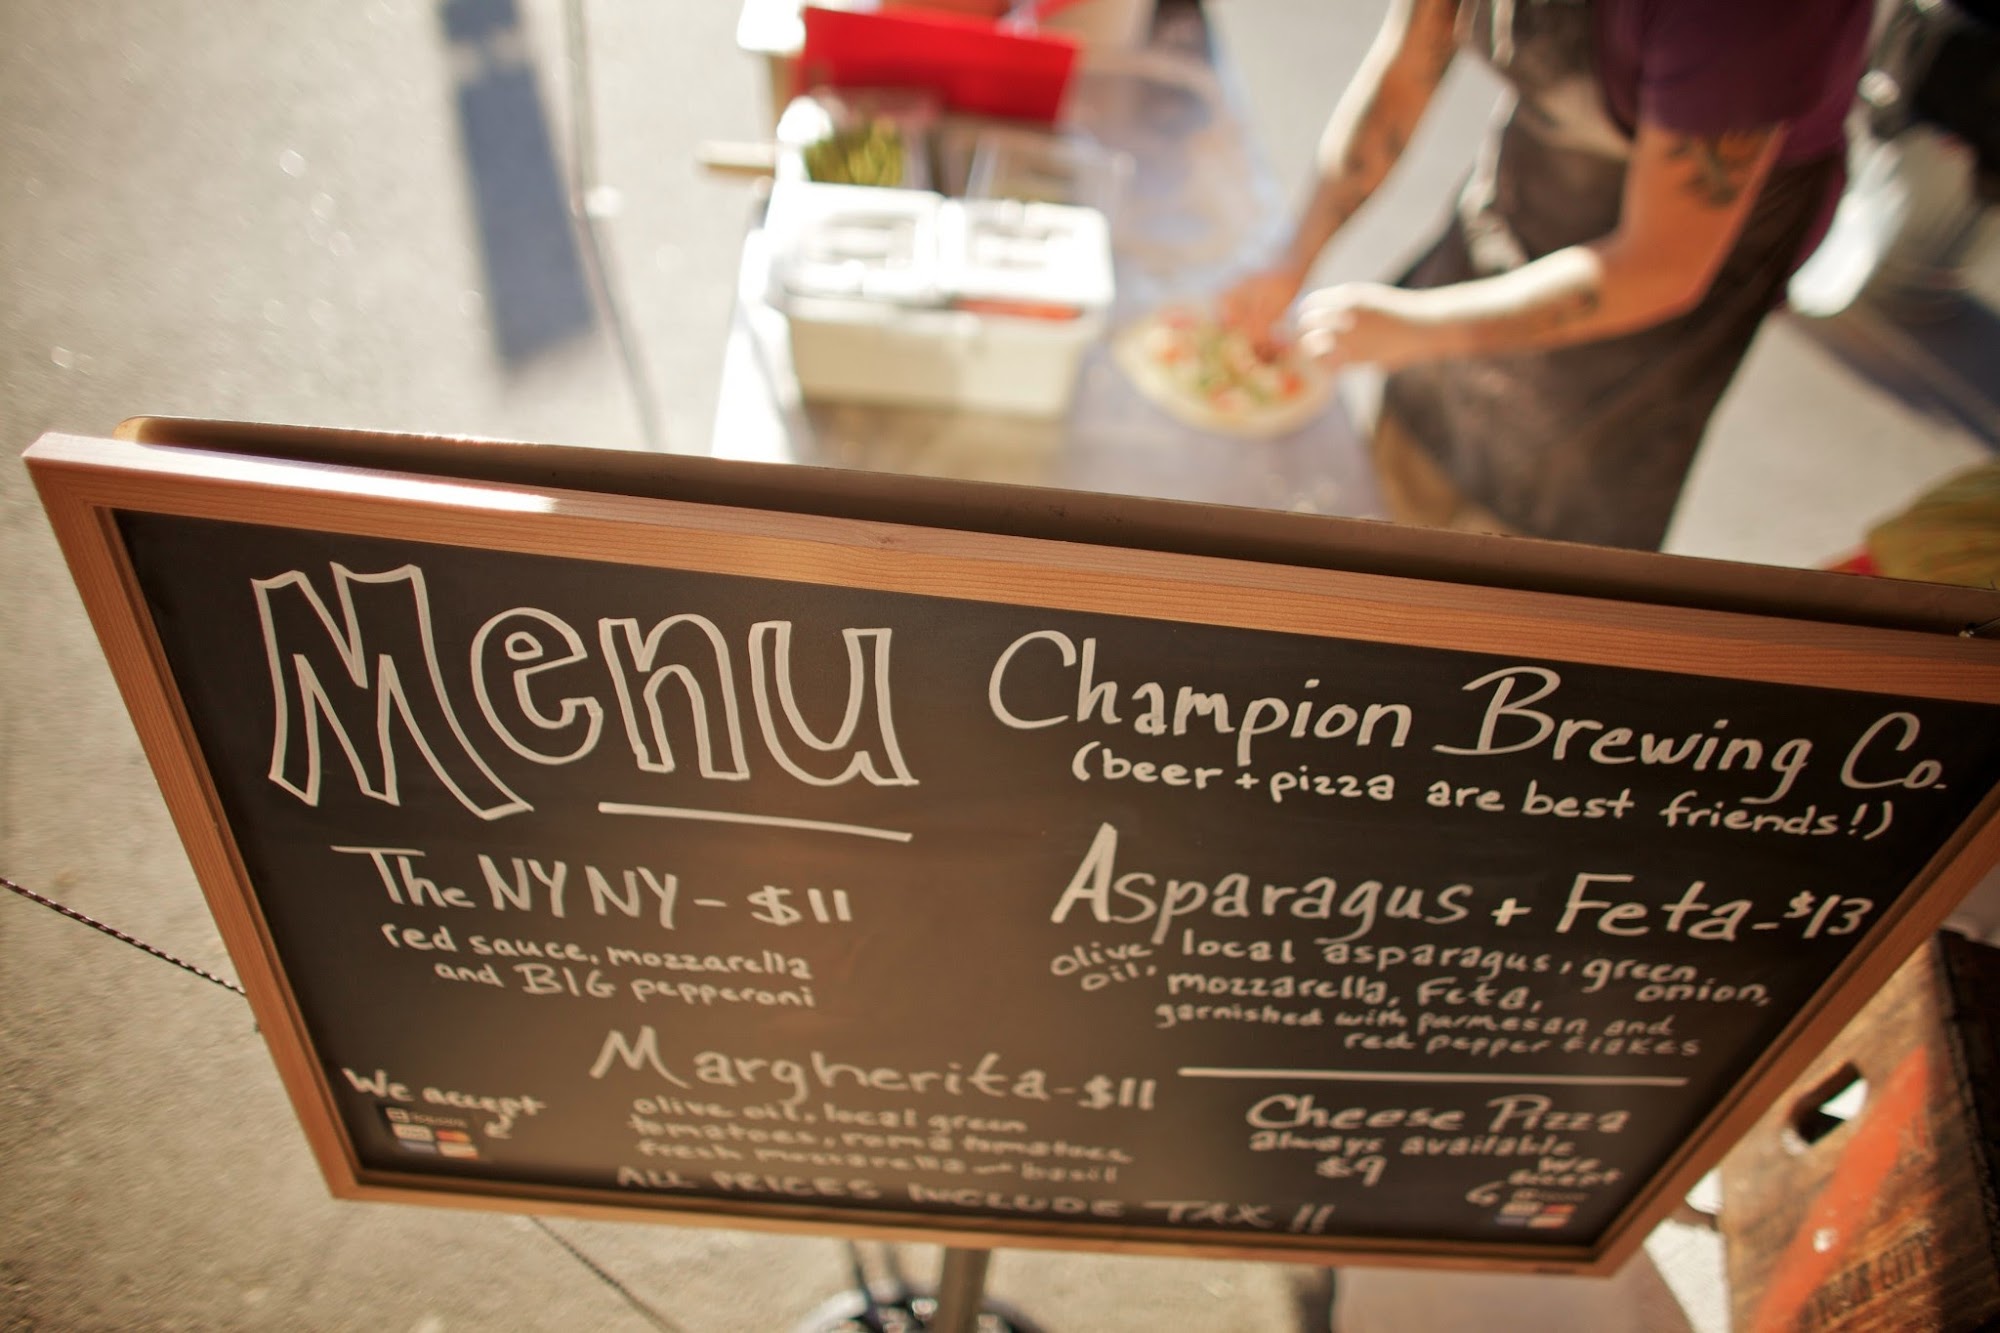 Menu
Champion Brewing Co.
(beer + pizza are best friends!)
The NYNY - $11
red sauce, mozzarella
and BIG pepperoni
Margherita - $11
olive oil, local green
tomatoes, roma tomatoes
fresh mozzarella and basil
We accept
Asparagus + Feta - $13
olive oil, local asparagus, green onion,
mozzarella, feta,
garnished with parmesan and
red pepper flakes
Cheese Pizza
always available
$9
We
accept
ALL PRICES INCLUDE TAX!!
CITY